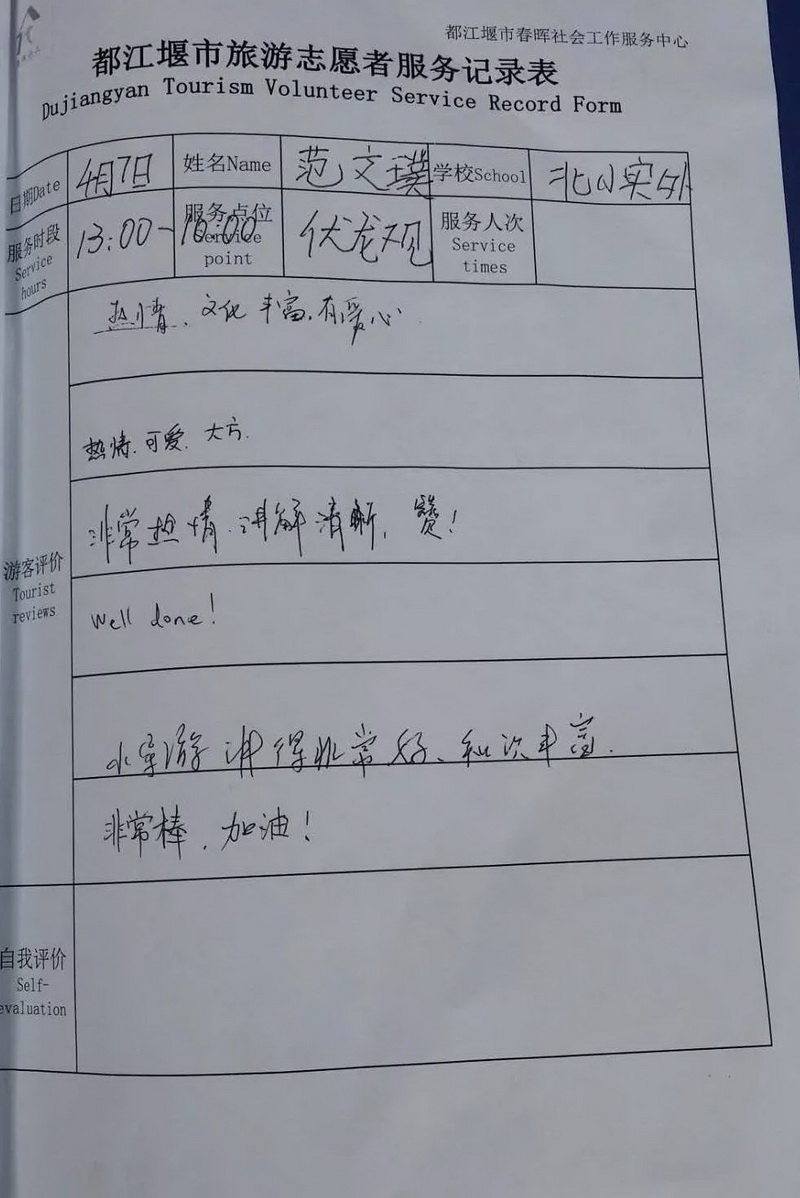 都江堰市春晖社会工作服务中心
都江堰市旅游志愿者服务记录表
Dujiangyan Tourism Volunteer Service Record Form
日期Date 4月7日 姓名Name 范文璞 学校School 北 实外
服务时段 Service hours 13:00-16:00 服务点位 Service point 伏龙观 服务人次 Service times
热情、文化丰富,有爱心
热情.可爱.大方.
游客评价 Tourist reviews
非常热情.讲解清晰,赞!
Well done!
小 游讲得非常好、知识丰富.
非常棒,加油!
自我评价 Self-evaluation